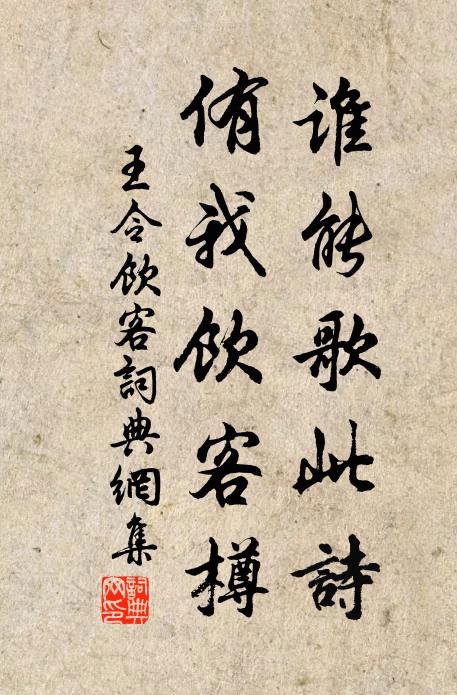 誰能歌此詩
侑我飲客樽
王令飲客詞典網集
詞典網印